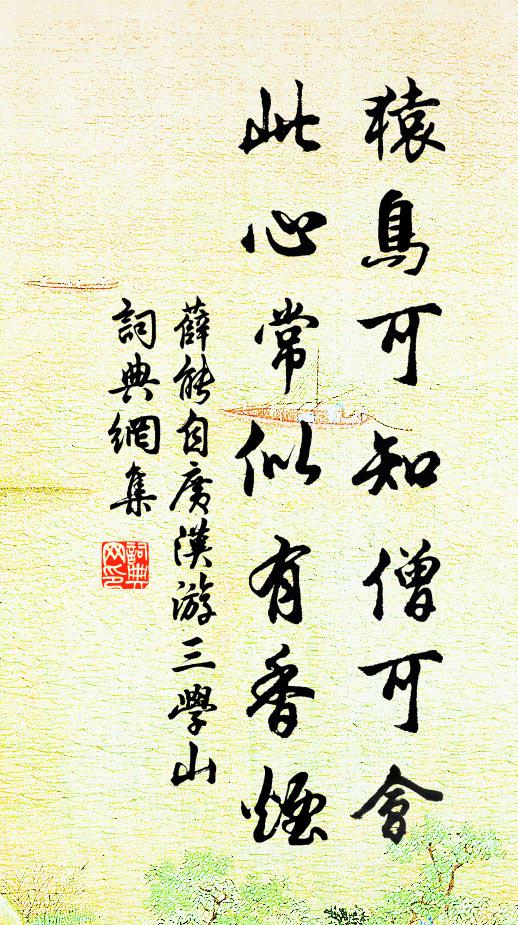 猿鳥可知僧可會
此心常似有香煙
薛能自廣漢游三學山
詞典網集
詞典
网印